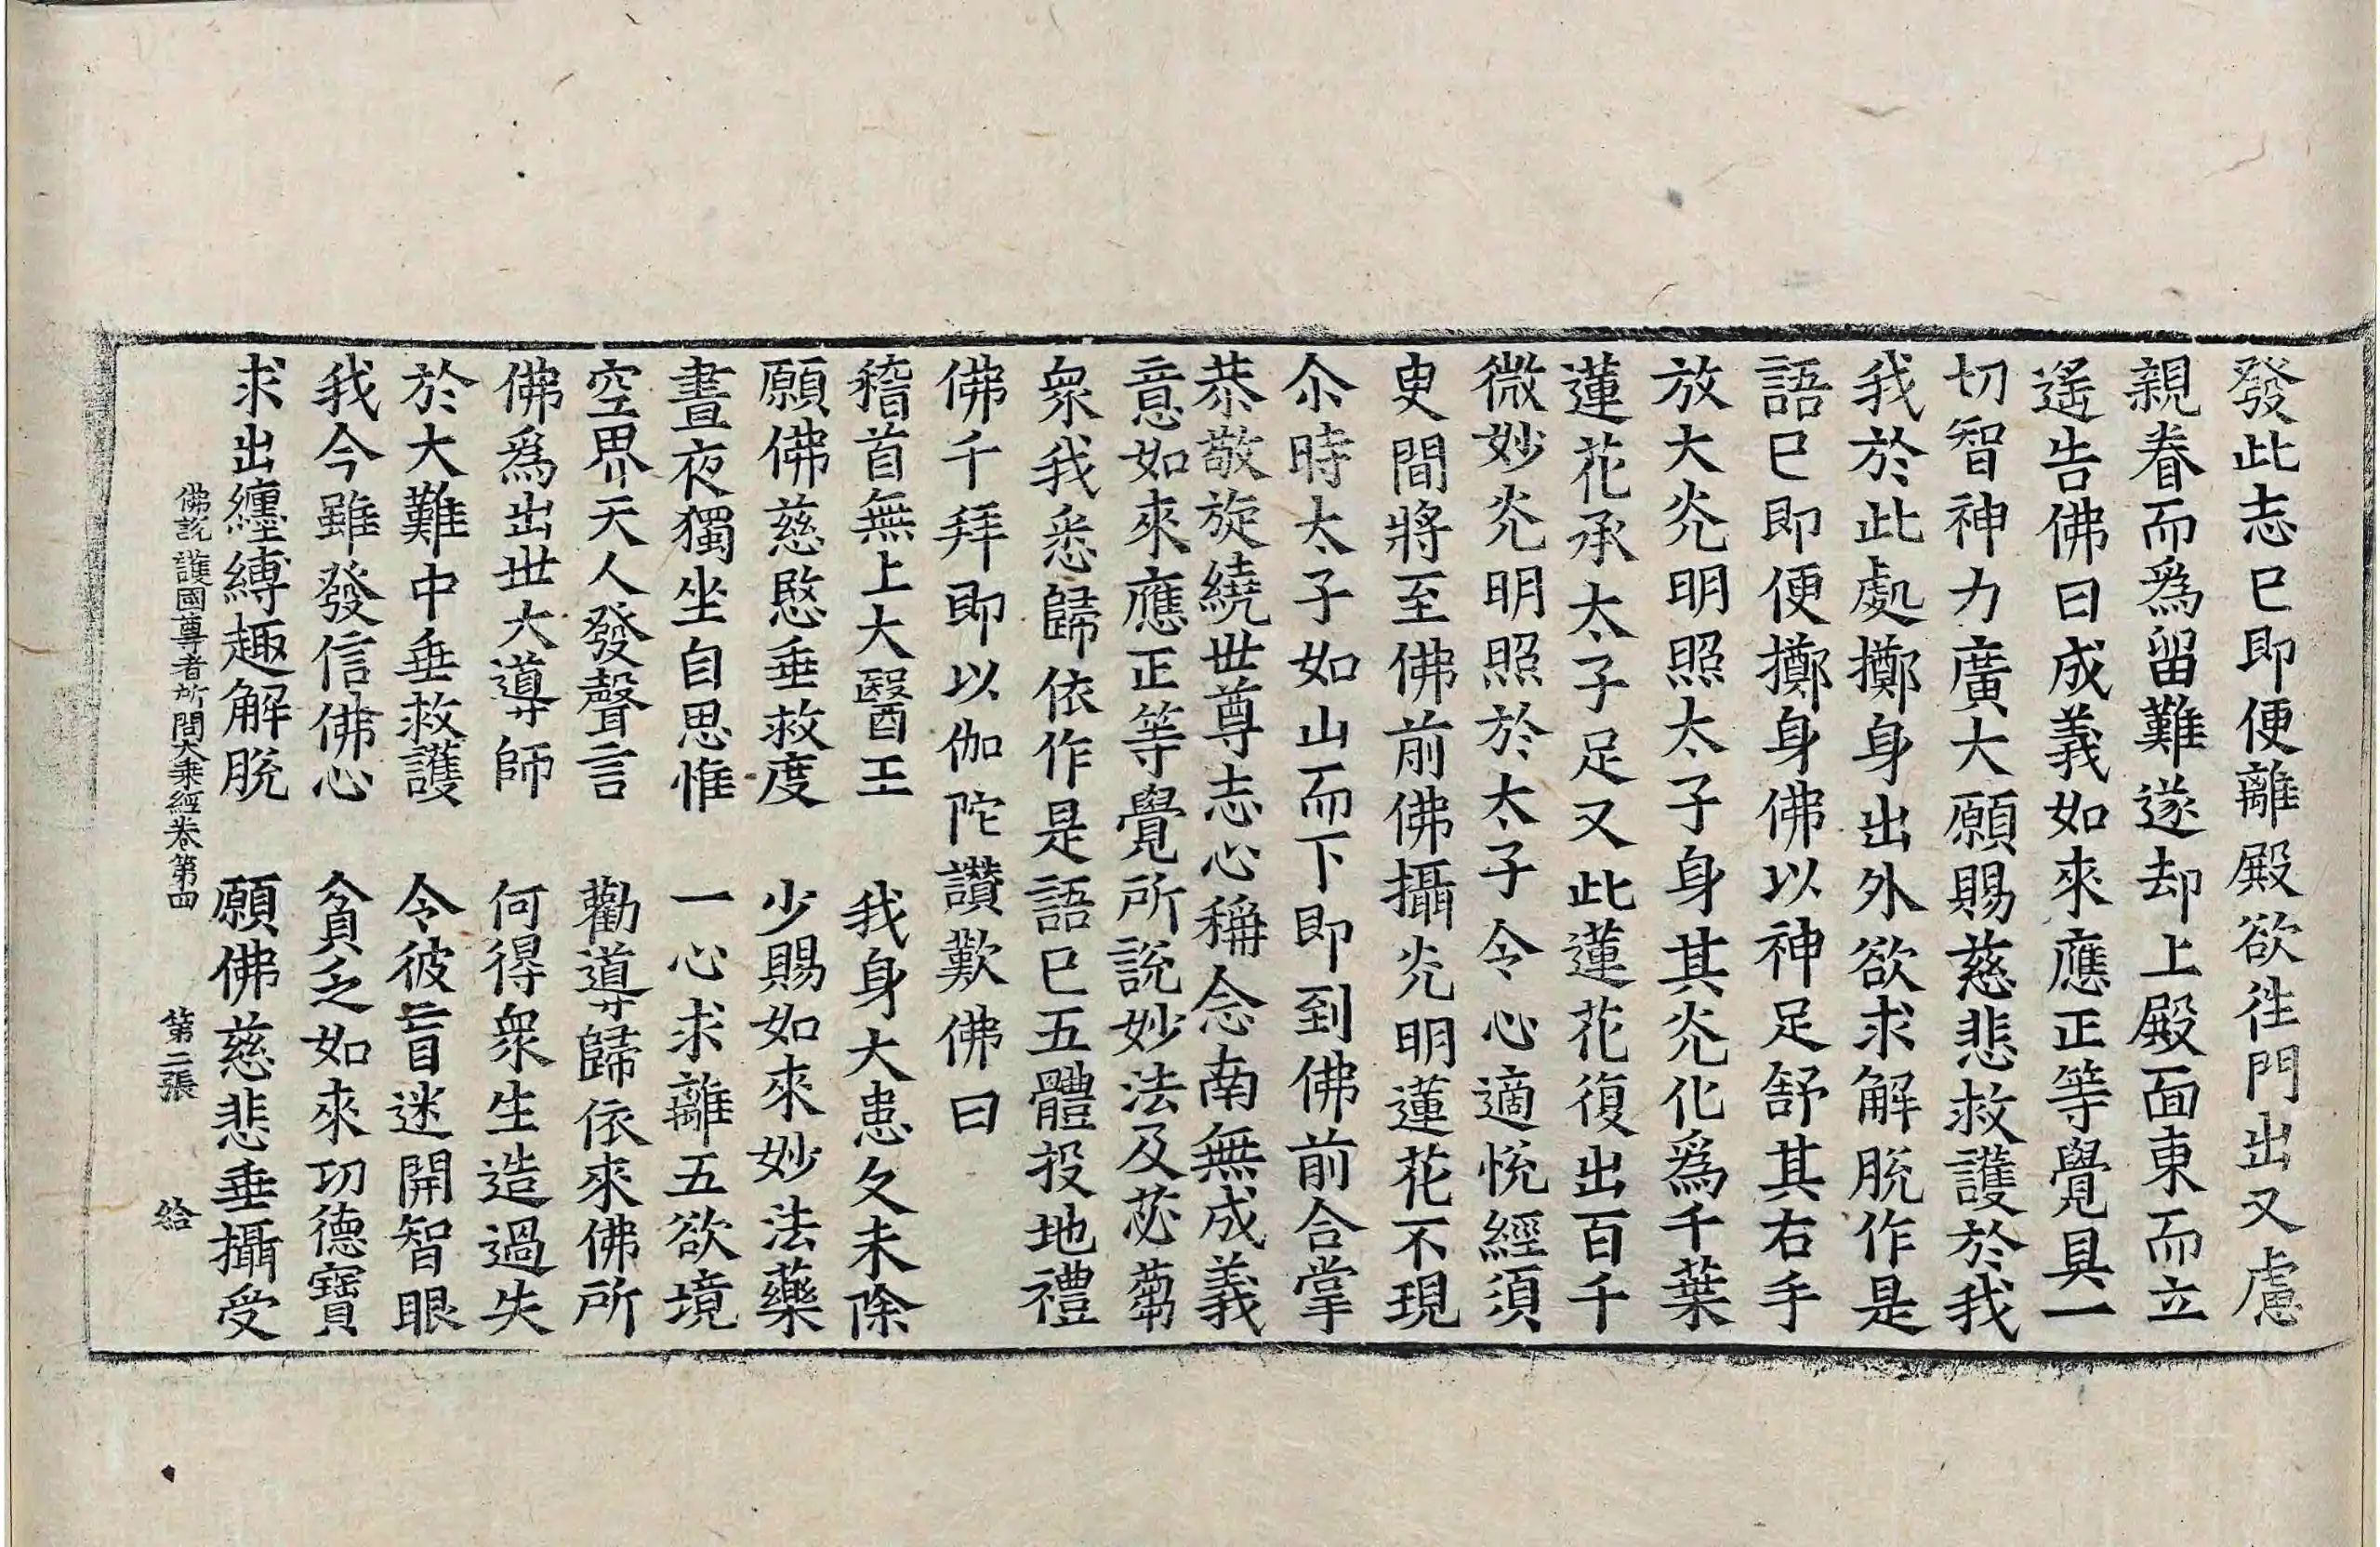 發此志已即便離殿欲徃門出又慮
親眷而爲留難遂却上殿面東而立
遙告佛曰成義如來應正等覺具一
切智神力廣大願賜慈悲救護於我
我於此處擲身出外欲求解脫作是
語已即便擲身佛以神足舒其右手
放大光明照太子身其光化爲千葉
蓮花承太子足又此蓮花復出百千
微妙光明照於太子令心適悅經須
臾間將至佛前佛攝光明蓮花不現
尒時太子如山而下即到佛前合掌
恭敬旋繞世尊志心稱念南無成義
意如來應正等覺所說妙法及苾蒭
衆我悉歸依作是語已五體投地禮
佛千拜即以伽陀讃歎佛曰
稽首無上大醫王　我身大患久未除
願佛慈愍垂救度　少賜如來妙法藥
晝夜獨坐自思惟　一心求離五欲境
空界天人發聲言　勸導歸依來佛所
佛爲出世大導師　何得衆生造過失
於大難中垂救護　令彼盲迷開智眼
我今雖發信佛心　貪乏如來功德寶
求出纏縛趣解脫　願佛慈悲垂攝受
佛說護國尊者所問大乘經卷第四　第二張　給